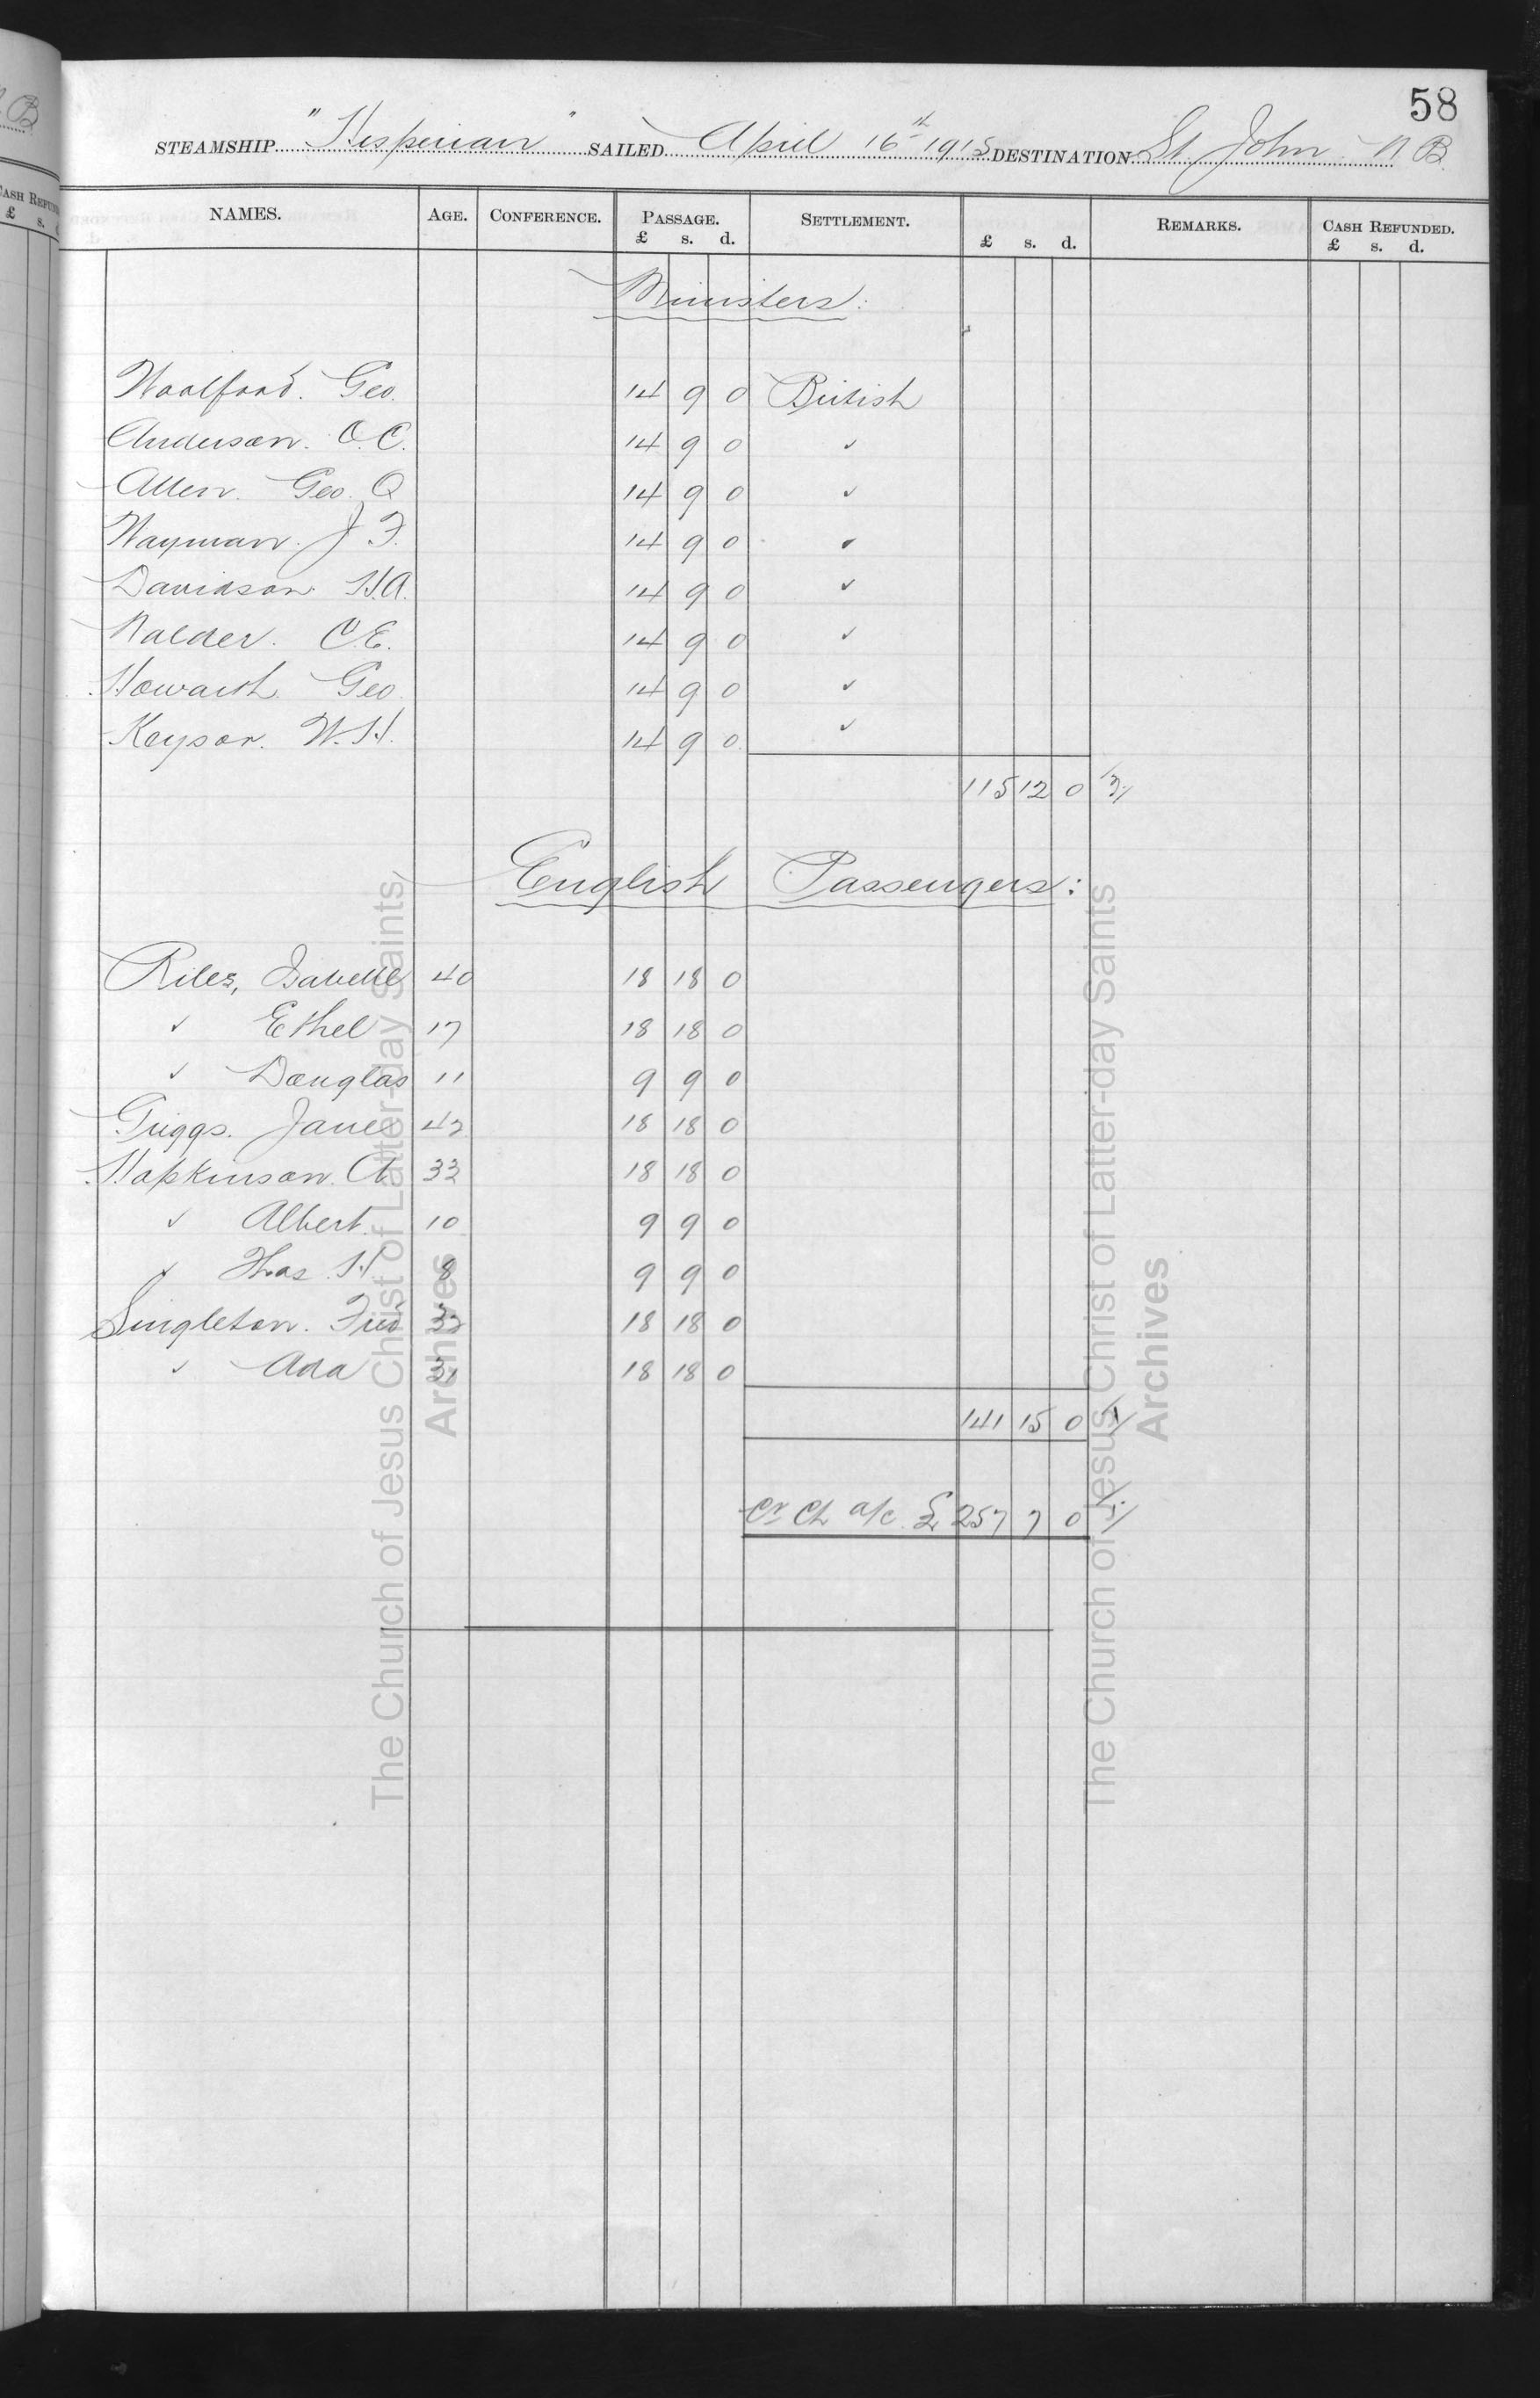 58
STEAMSHIP "Hesperian" SAILED April 16th 1915 DESTINATION St. John N B.
NAMES. AGE. CONFERENCE. PASSAGE. £ s. d. SETTLEMENT. £ s. d. REMARKS. CASH REFUNDED. £ s. d.
Ministers:
Woolford. Geo. 14 9 0 British
Anderson. O.C. 14 9 0 "
Allen. Geo. Q 14 9 0 "
Wayman. J F. 14 9 0 "
Davidson. H.A. 14 9 0 "
Nalder. C.E. 14 9 0 "
Howarth. Geo. 14 9 0 "
Keysor. W.H. 14 9 0 "
115 12 0
English Passengers:
Riley, Isabelle 40 18 18 0
" Ethel 17 18 18 0
" Douglas 11 9 9 0
Griggs. Jane 42 18 18 0
Hopkinson. A. 33 18 18 0
" Albert. 10 9 9 0
" Thos. H. 8 9 9 0
Singleton. Fred 32 18 18 0
" Ada 31 18 18 0
141 15 0
Cr Ch a/c £ 257 7 0
The Church of Jesus Christ of Latter-day Saints
Archives
The Church of Jesus Christ of Latter-day Saints
Archives